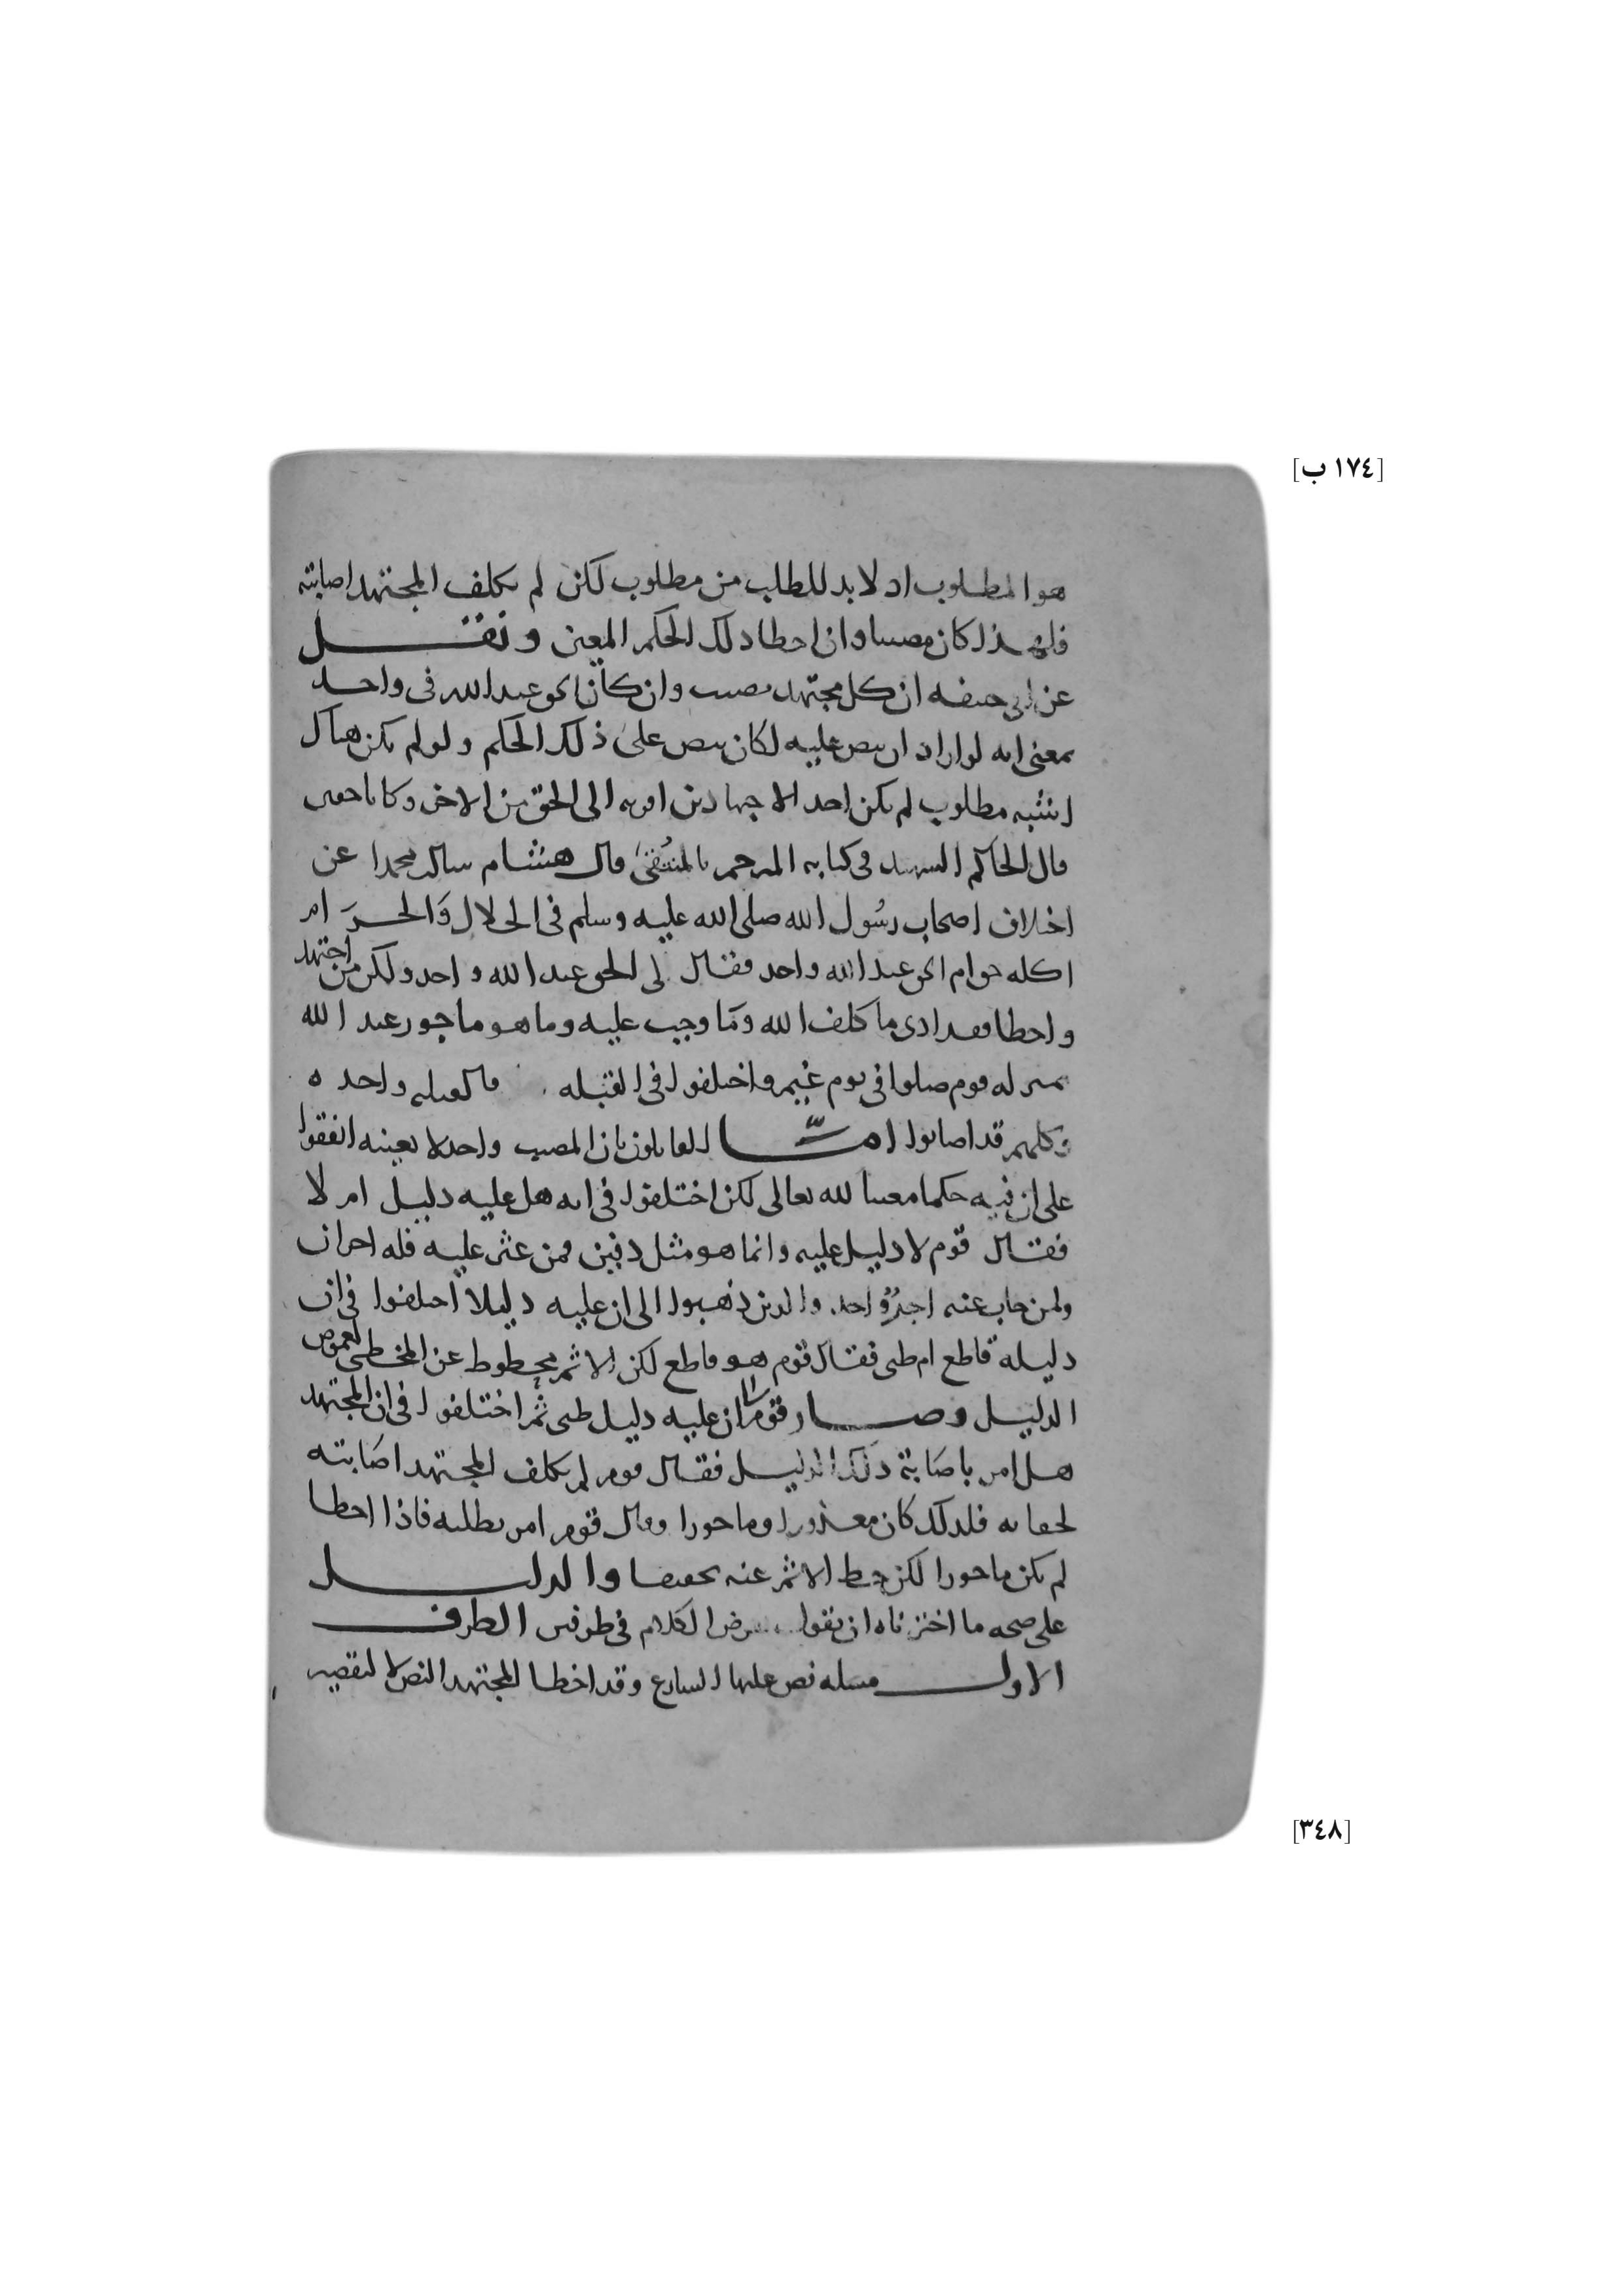 [١٧٤ ب]
هو المطلوب اذ لا بد للطلب من مطلوب لكن لم يكلف المجتهد اصابته
فلهذا كان مصيبا وان اخطا ذلك الحكم المعين ونقل
عن ابي حنيفه ان كل مجتهد مصيب وان كان الحق عند الله في واحد
بمعنى انه لو اراد ان ينص عليه لكان ينص على ذلك الحكم ولو لم يكن هناك
اشبه مطلوب لم يكن احد الاجتهادين اقرب الى الحق من الاخر وكانا حقين
قال الحاكم الشهيد في كتابه المترجم بالمنتقى قال هشام سالت محمدا عن
اختلاف اصحاب رسول الله صلى الله عليه وسلم في الحلال والحرام
اكله حرام الحق عند الله واحد فقال لي الحق عند الله واحد ولكن من اجتهد
واخطا فقد ادى ما كلف الله وما وجب عليه وما هو ماجور عند الله
بمنزله قوم صلوا في يوم غيم واختلفوا في القبله فالقبله واحده
وكلهم قد اصابوا امّا القايلون بان المصيب واحد لا بعينه اتفقوا
على ان فيه حكما معينا لله تعالى لكن اختلفوا في انه هل عليه دليل ام لا
فقال قوم لا دليل عليه وانما هو مثل دفين فمن عثر عليه فله اجران
ولمن خاب عنه اجرٌ واحد والذين ذهبوا الى ان عليه دليلا اختلفوا في ان
دليله قاطع ام ظني فقال قوم هو قاطع لكن الاثم محطوط عن المخطي لغموض
الدليل وصار قوم الى ان عليه دليل ظني ثم اختلفوا في ان المجتهد
هل امر باصابة ذلك الدليل فقال قوم لم يكلف المجتهد اصابته
لخفائه فلذلك كان معذورا وماجورا وقال قوم امر بطلبه فاذا اخطا
لم يكن ماجورا لكن حط الاثم عنه تخفيفا والدليل
على صحه ما اخترناه ان نقول نفرض الكلام في طرفين الطرف
الاول مسله نص عليها الشارع وقد اخطا المجتهد النص لا لتقصير
[٣٤٨]